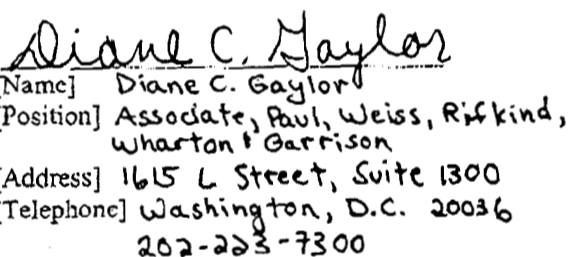 Diane C. Gaylor
[Name] Diane C. Gaylor
[Position] Associate, Paul, Weiss, Rifkind,
Wharton & Garrison
[Address] 1615 L Street, Suite 1300
[Telephone] Washington, D.C. 20036
202-223-7300